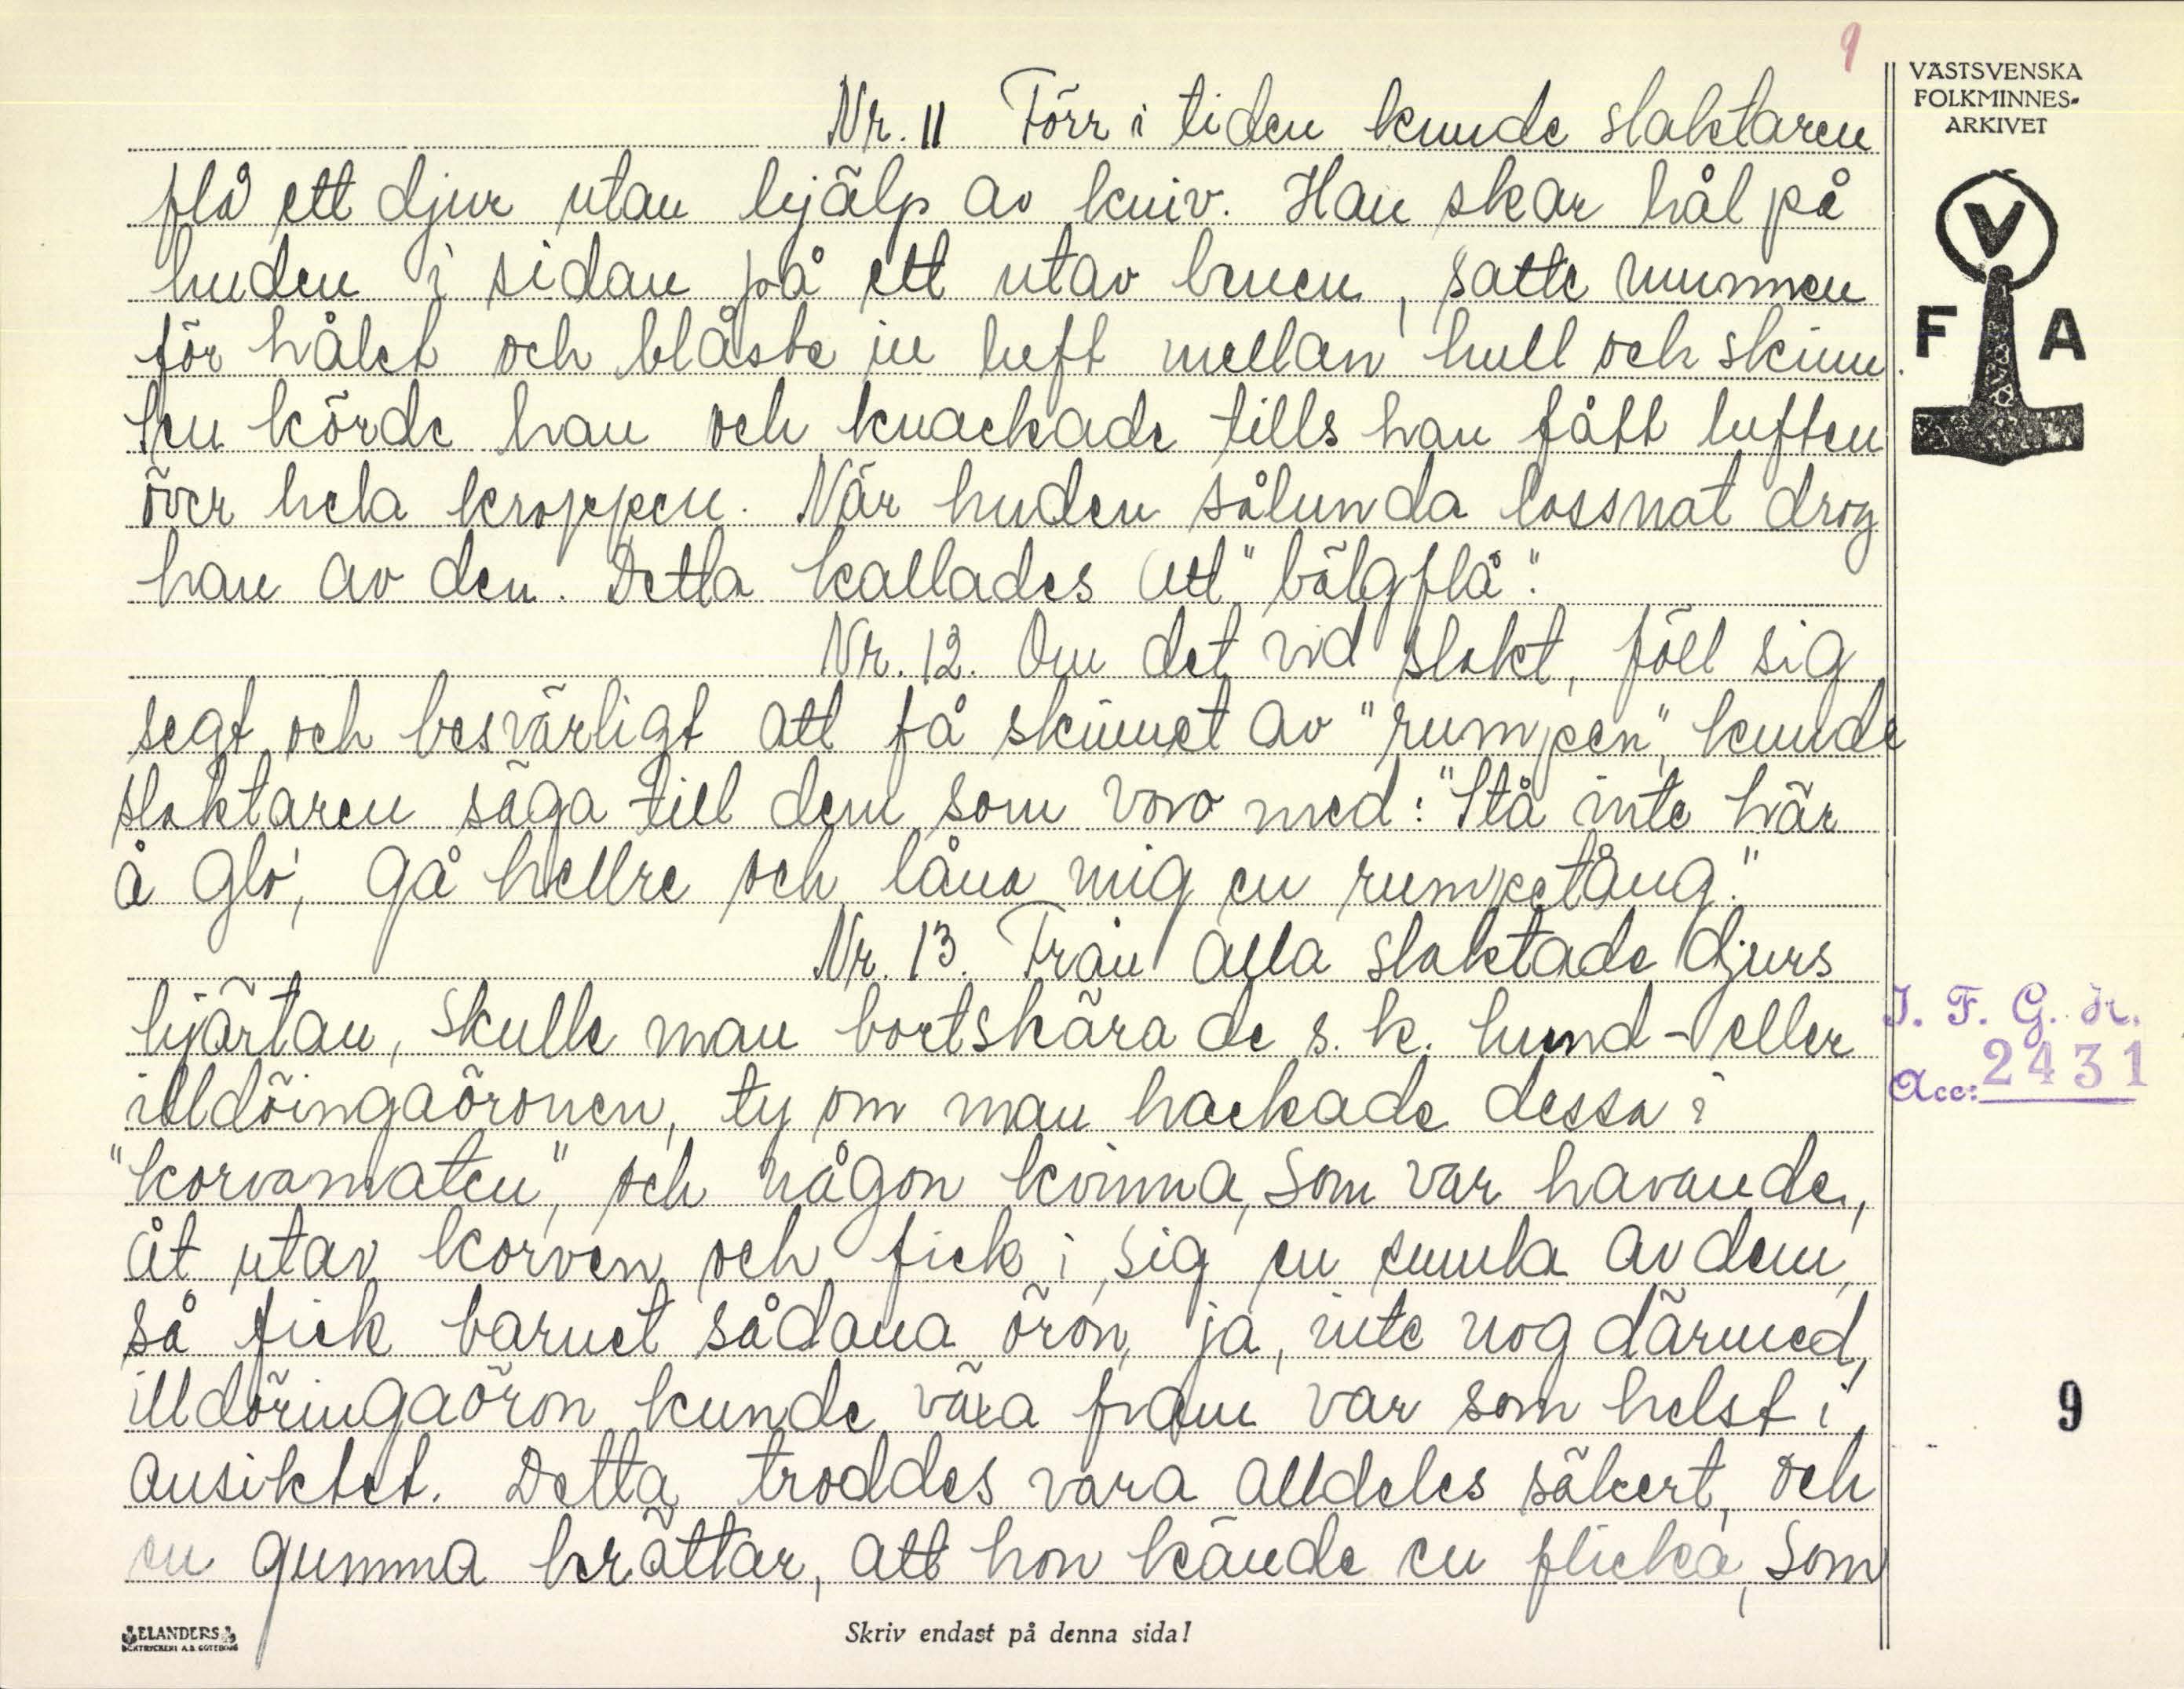 9
VÄSTSVENSKA
FOLKMINNES-
ARKIVET
V
F A
Nr. 11 Förr i tiden kunde slaktaren
flå ett djur utan hjälp av kniv. Han skar hål på
huden i sidan på ett utav benen, satte munnen
för hålet och blåste in luft mellan hull och skinn.
Sen körde han och knackade tills han fått luften
över hela kroppen. När huden sålunda lossnat drog
han av den. Detta kallades att "bälgflå".
Nr. 12. Om det vid slakt, föll sig
segt och besvärligt att få skinnet av "rumpen", kunde
slaktaren säga till dem som voro med: "Stå inte här
å glo', gå hellre och låna mig en rumpetång."
Nr. 13. Från alla slaktade djurs
hjärtan, skulle man bortskära de s. k. hund- eller
illdöingaöronen, ty om man hackade dessa i
"korvamaten", och någon kvinna, som var havande,
åt utav korven och fick i sig en smula av dem,
så fick barnet sådana öron, ja, inte nog därmed,
illdöringaöron kunde växa fram var som helst i
ansiktet. Detta troddes vara alldeles säkert, och
en gumma berättar, att hon kände en flicka, som
I. F. G. H.
Acc: 2431
9
ELANDERS
BOKTRYCKERI A.B. GÖTEBORG
Skriv endast på denna sida!